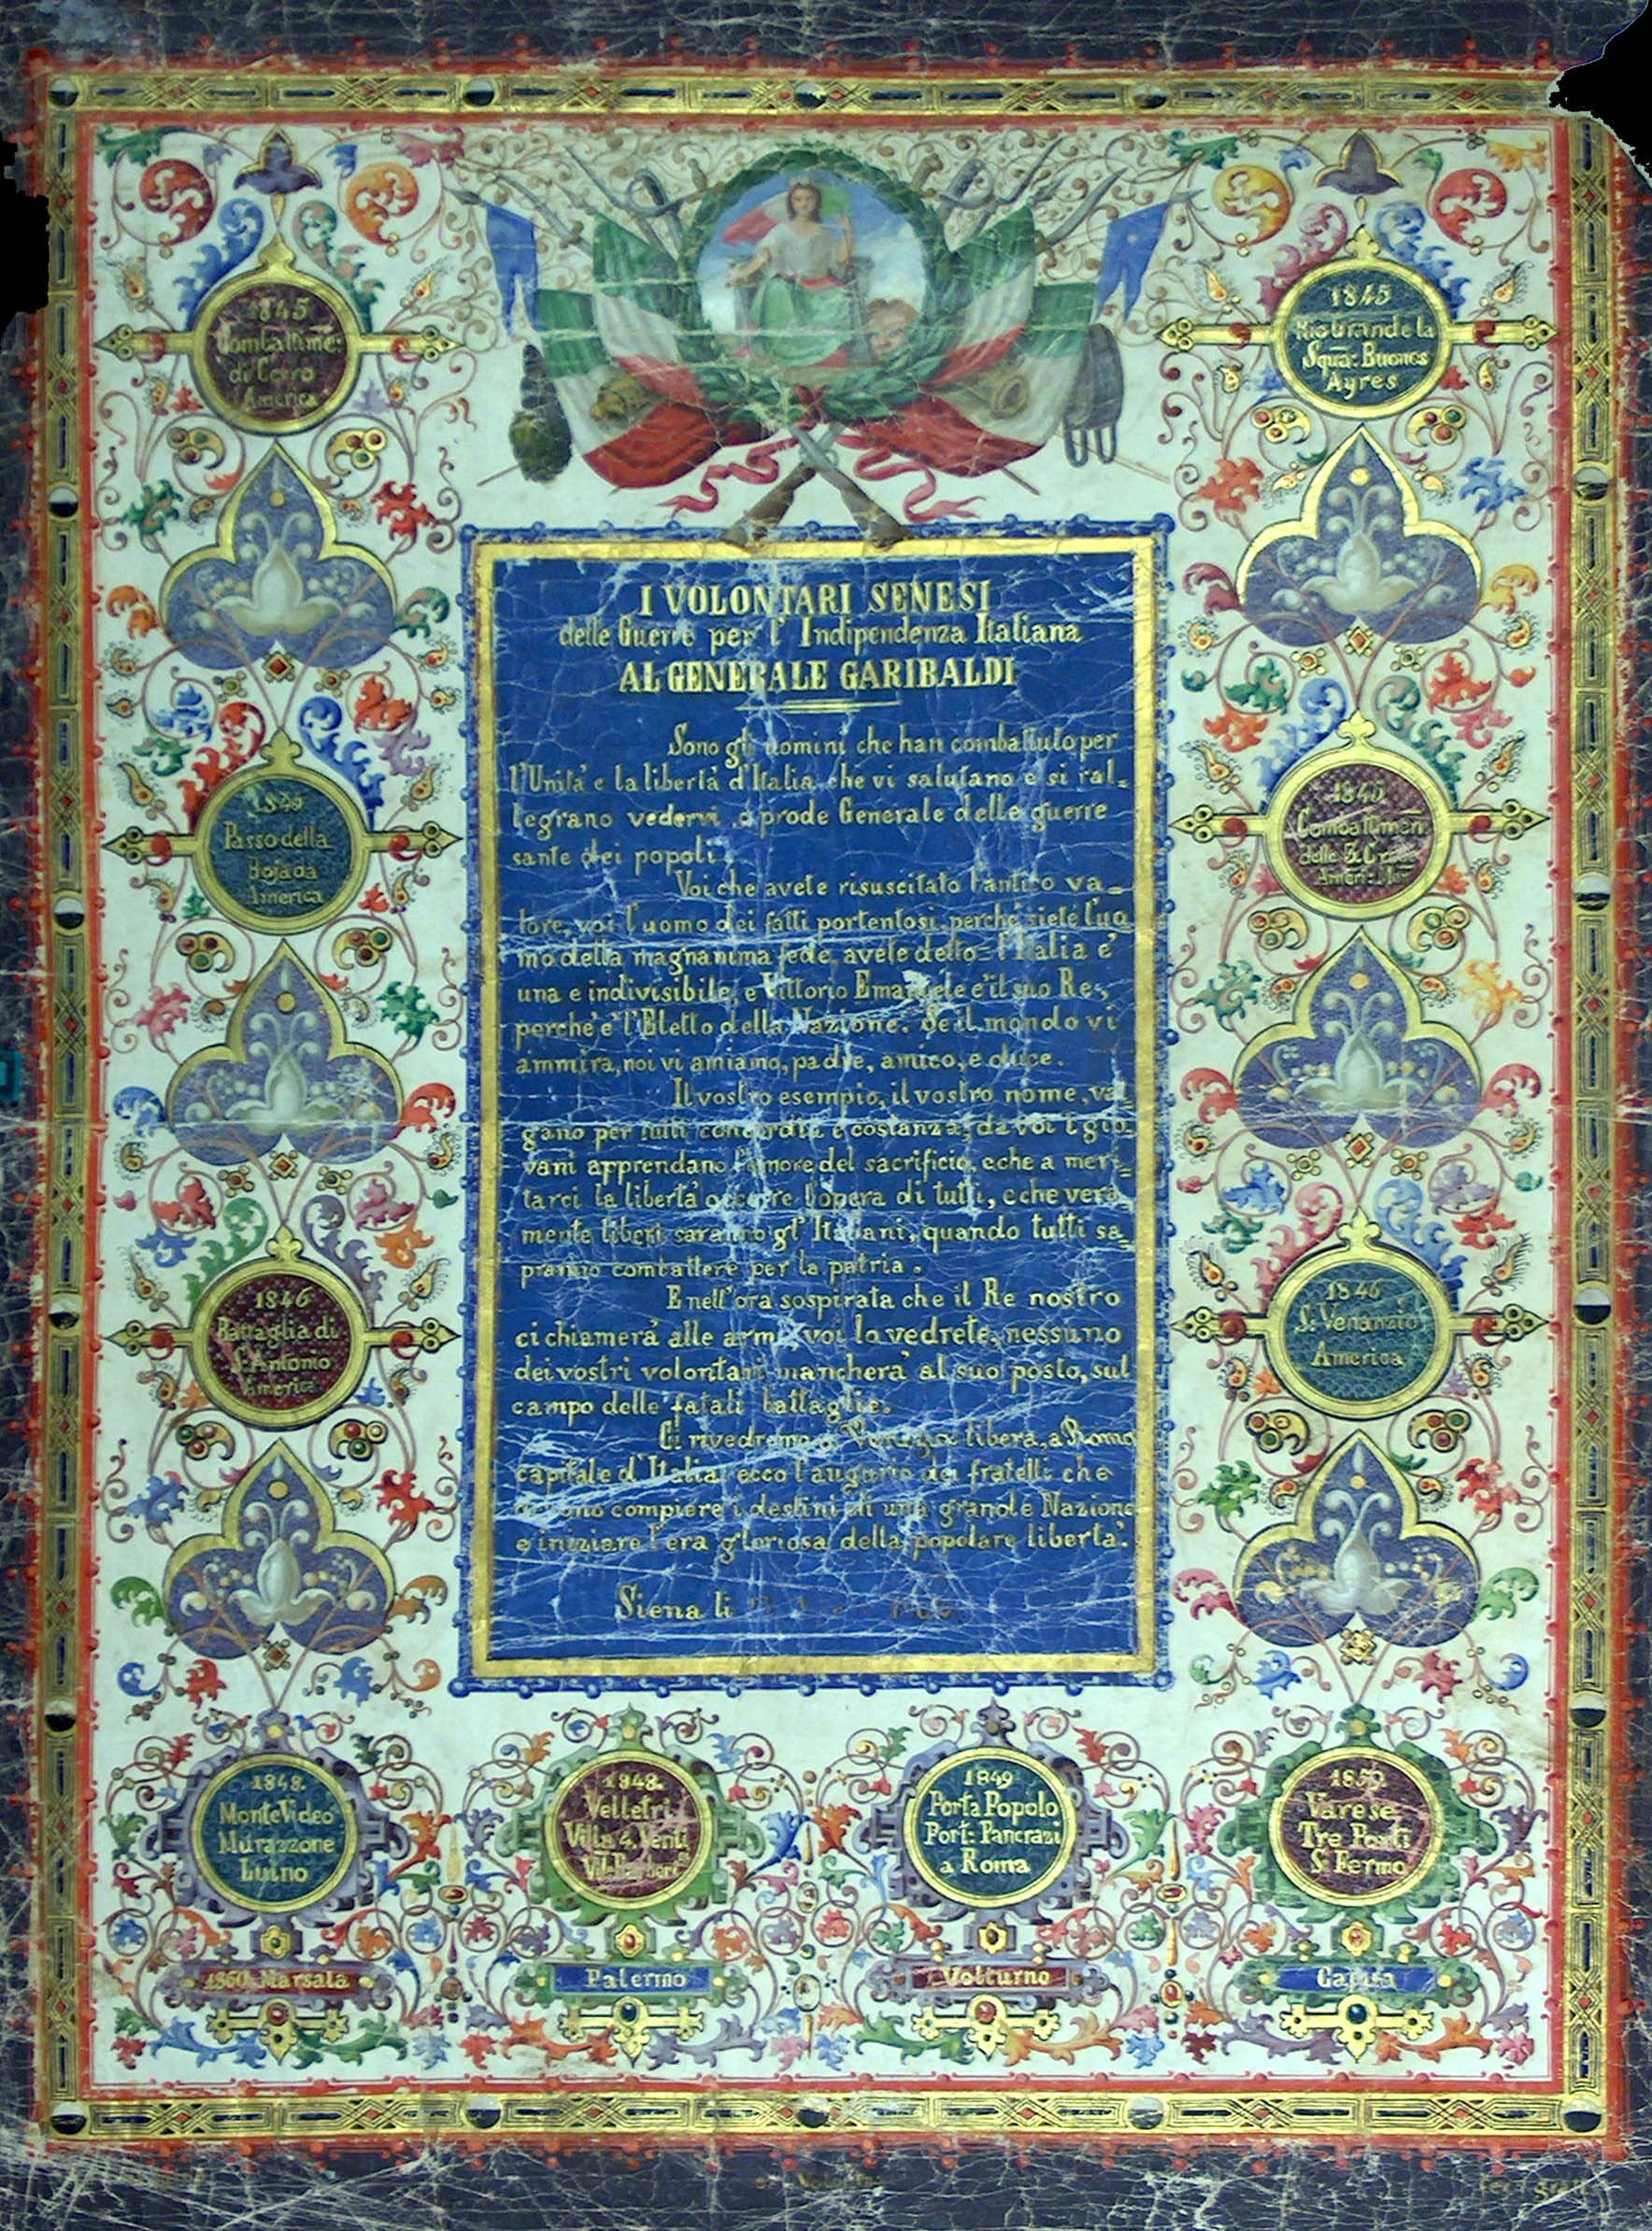 1845
Combattime:
di Cerro
America
1845
Rio Grande la
Squa: Buenos
Ayres
I VOLONTARI SENESI
delle Guerre per l' Indipendenza Italiana
AL GENERALE GARIBALDI
Sono gli uomini che han combattuto per
l'Unita' e la liberta' d'Italia, che vi salutano e si ral=
legrano vedervi, o prode Generale delle guerre
sante dei popoli.
Voi che avete risuscitato l'antico va=
lore, voi l'uomo dei fatti portentosi, perche' siete l'uo
mo della magnanima fede, avete detto = l'Italia e'
una e indivisibile, e Vittorio Emanuele e' il suo Re,
perche' e' l'Eletto della Nazione. Se il mondo vi
ammira, noi vi amiamo, padre, amico, e duce.
Il vostro esempio, il vostro nome, val
gano per tutti concordia e costanza; da voi i gio
vani apprendano l'amore del sacrificio, e che a meri=
tarci la liberta' occorre l'opera di tutti, e che vera
mente liberi saranno gl' Italiani, quando tutti sa=
pranno combattere per la patria.
E nell'ora sospirata che il Re nostro
ci chiamera' alle armi, voi lo vedrete, nessuno
dei vostri volontari manchera' al suo posto, sul
campo delle fatali battaglie.
Ci rivedremo a Venezia libera, a Roma
capitale d'Italia; ecco l'augurio dei fratelli che
compiere i destini di una grande Nazione
e iniziare l'era gloriosa della popolare liberta'.
Siena li
Passo della
Bojada
America
Combattimen
delle 3
1846
Battaglia di
S. Antonio
America
1846
S. Venanzio
America
1848.
MonteVideo
Murazzone
Luino
1848.
Velletri
Villa 4. Venti
1849
Porta Popolo
Port: Pancrazi
a Roma
1859
Varese
Tre Ponti
S. Fermo
1860 Marsala
Palermo
Volturno
Capua